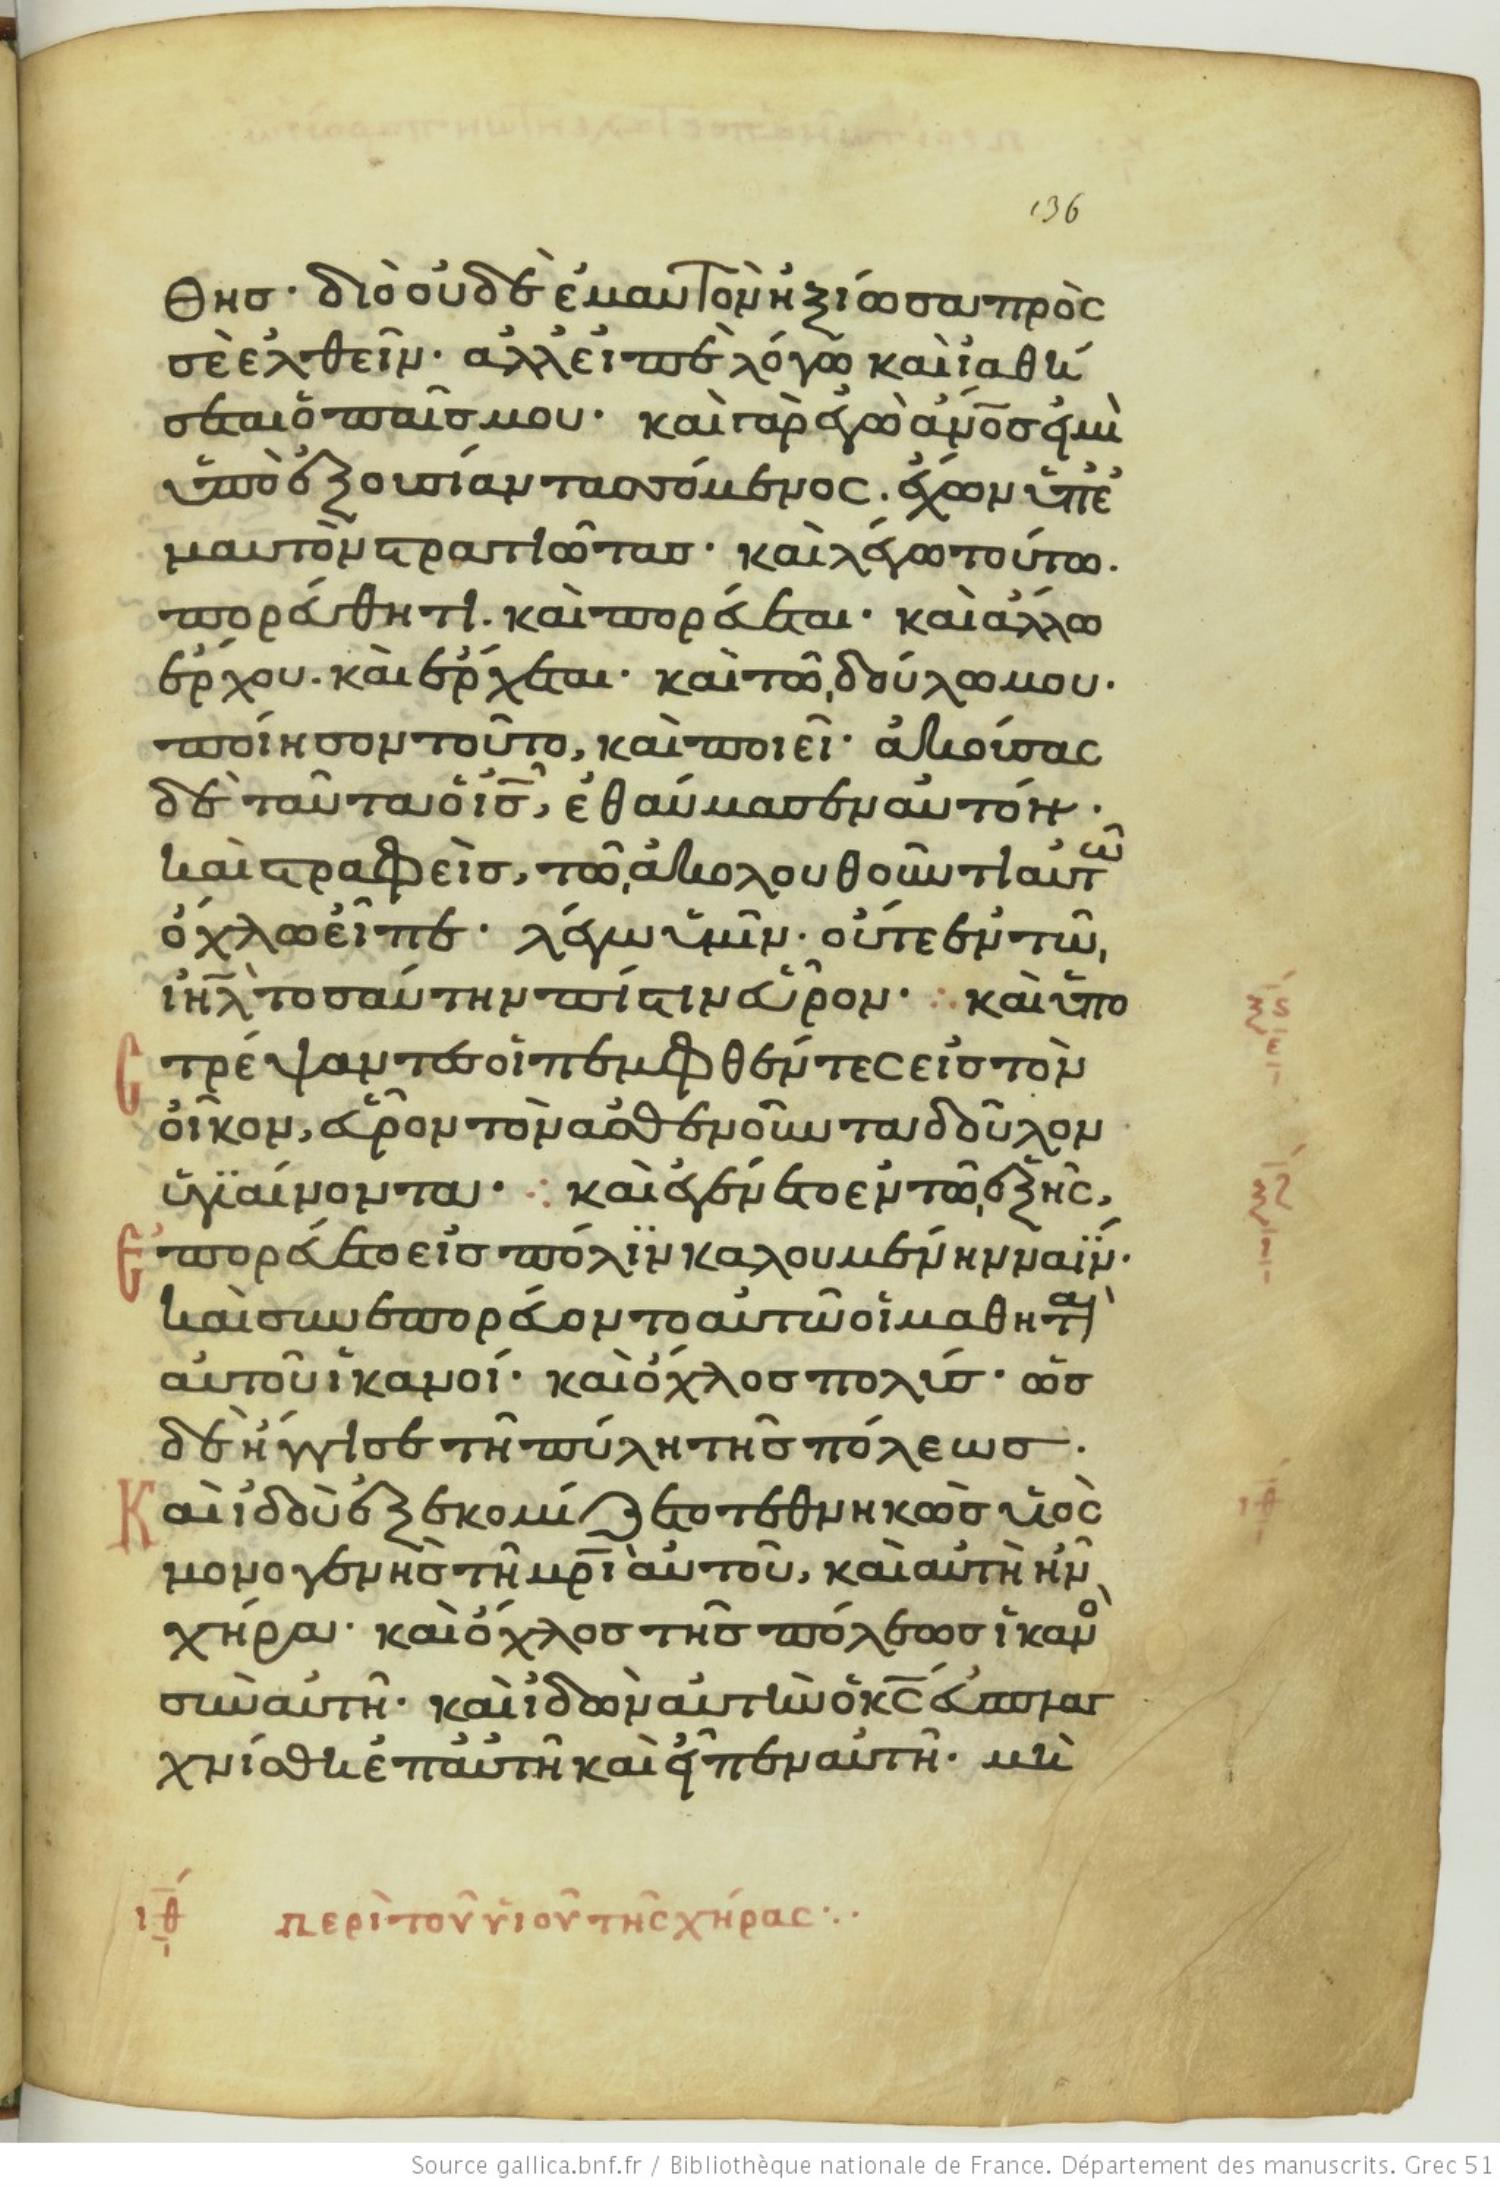 136
θησ· διὸ οὐδὲ ἐμαυτὸν ἠξίωσα πρὸς
σὲ ἐλθεῖν· ἀλλ εἰπὲ λόγω καὶ ἰαθή
σεται ὁ παῖσ μου· καὶ γὰρ ἐγὼ ἀν̅οσ εἰμὶ
ὑπὸ ἐξουσίαν τασσόμενος. ἔχων ὑπ ἐ
μαυτὸν στρατιῶτασ· καὶ λέγω τούτω.
πορεύθητι. καὶ πορεύεται· καὶ ἄλλω
ἔρχου. καὶ ἔρχεται· καὶ τῶ, δούλω μου·
ποίησον τοῦτο, καὶ ποιεῖ· ἀκούσας
δὲ ταῦτα ὁ ι̅σ̅, ἐθαύμασεν αὐτόν·
καὶ στραφεὶσ, τῶ, ἀκολουθοῦντι αὐτῶ
ὄχλω εἶπε· λέγω ὑμῖν· οὔτε ἐν τῶ,
ἰη̅λ̅ τοσαύτην πίστιν εὗρον· ∴ καὶ ὑπο
στρέψαντεσ οἱ πεμφθέντες εἰσ τὸν
οἶκον, εὗρον τὸν ἀσθενοῦντα δοῦλον
ὑγϊαίνοντα· ∴ καὶ ἐγένετο ἐν τῶ, ἑξῆς,
ἐπορεύετο εἰσ πόλϊν καλουμένην ναΐν·
καὶ συνεπορεύοντο αὐτῶ οἱ μαθηταὶ
αὐτοῦ ἱκανοί· καὶ ὄχλοσ πολύσ· ὡσ
δὲ ἤγγισε τῆ πύλη τῆσ πόλεωσ·
Καὶ ἰδοὺ ἐξεκομίζετο τεθνηκὼσ υἱὸς
μονογενὴσ τῆ μρ̅ὶ αὐτοῦ, καὶ αὐτὴ ἦν
χήρα· καὶ ὄχλοσ τῆσ πόλεωσ ἱκανὸ
σὺν αὐτῆ· καὶ ἰδὼν αὐτὴν ὁ κ̅ς̅ ἐσπλαγ
χνίσθη ἐπ αὐτῆ καὶ εἶπεν αὐτῆ· μὴ
ξς
ε
ξζ
ι
ιθ
ιθ περὶ τοῦ υἱοῦ τῆς χήρας∴
Source gallica.bnf.fr / Bibliothèque nationale de France. Département des manuscrits. Grec 51